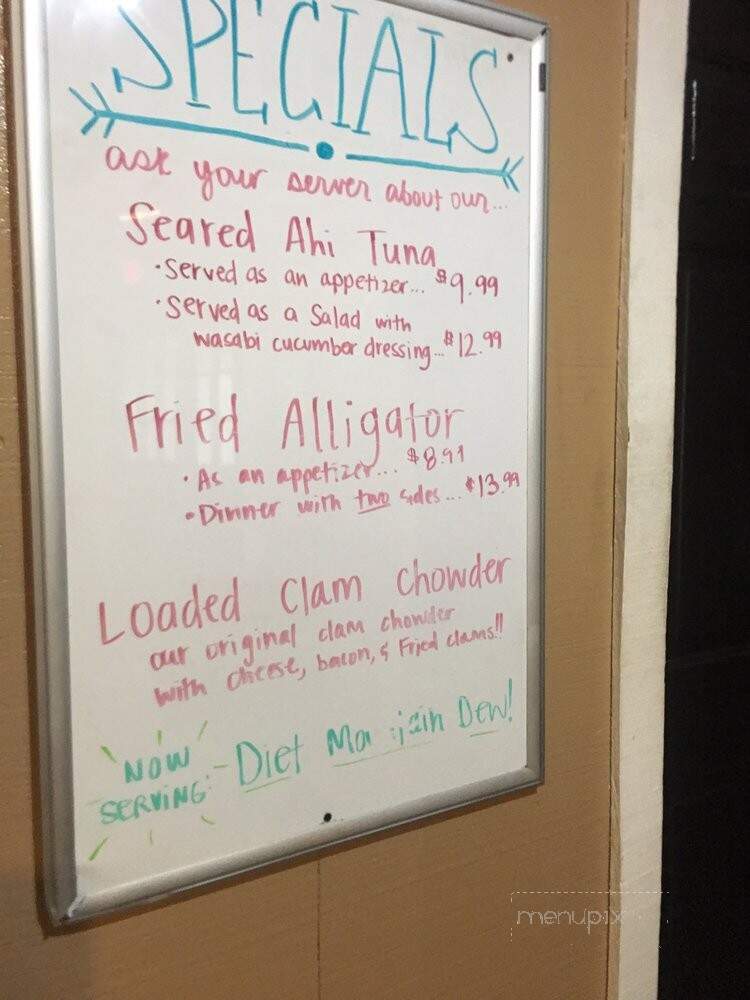 SPECIALS
ask your server about our...
Seared Ahi Tuna
•Served as an appetizer... $9.99
•Served as a Salad with
wasabi cucumber dressing... $12.99
Fried Alligator
•As an appetizer... $8.99
•Dinner with two sides... $13.99
Loaded Clam Chowder
our original clam chowder
with cheese, bacon, & Fried clams!!
NOW
SERVING: - Diet Mountain Dew!
menupix